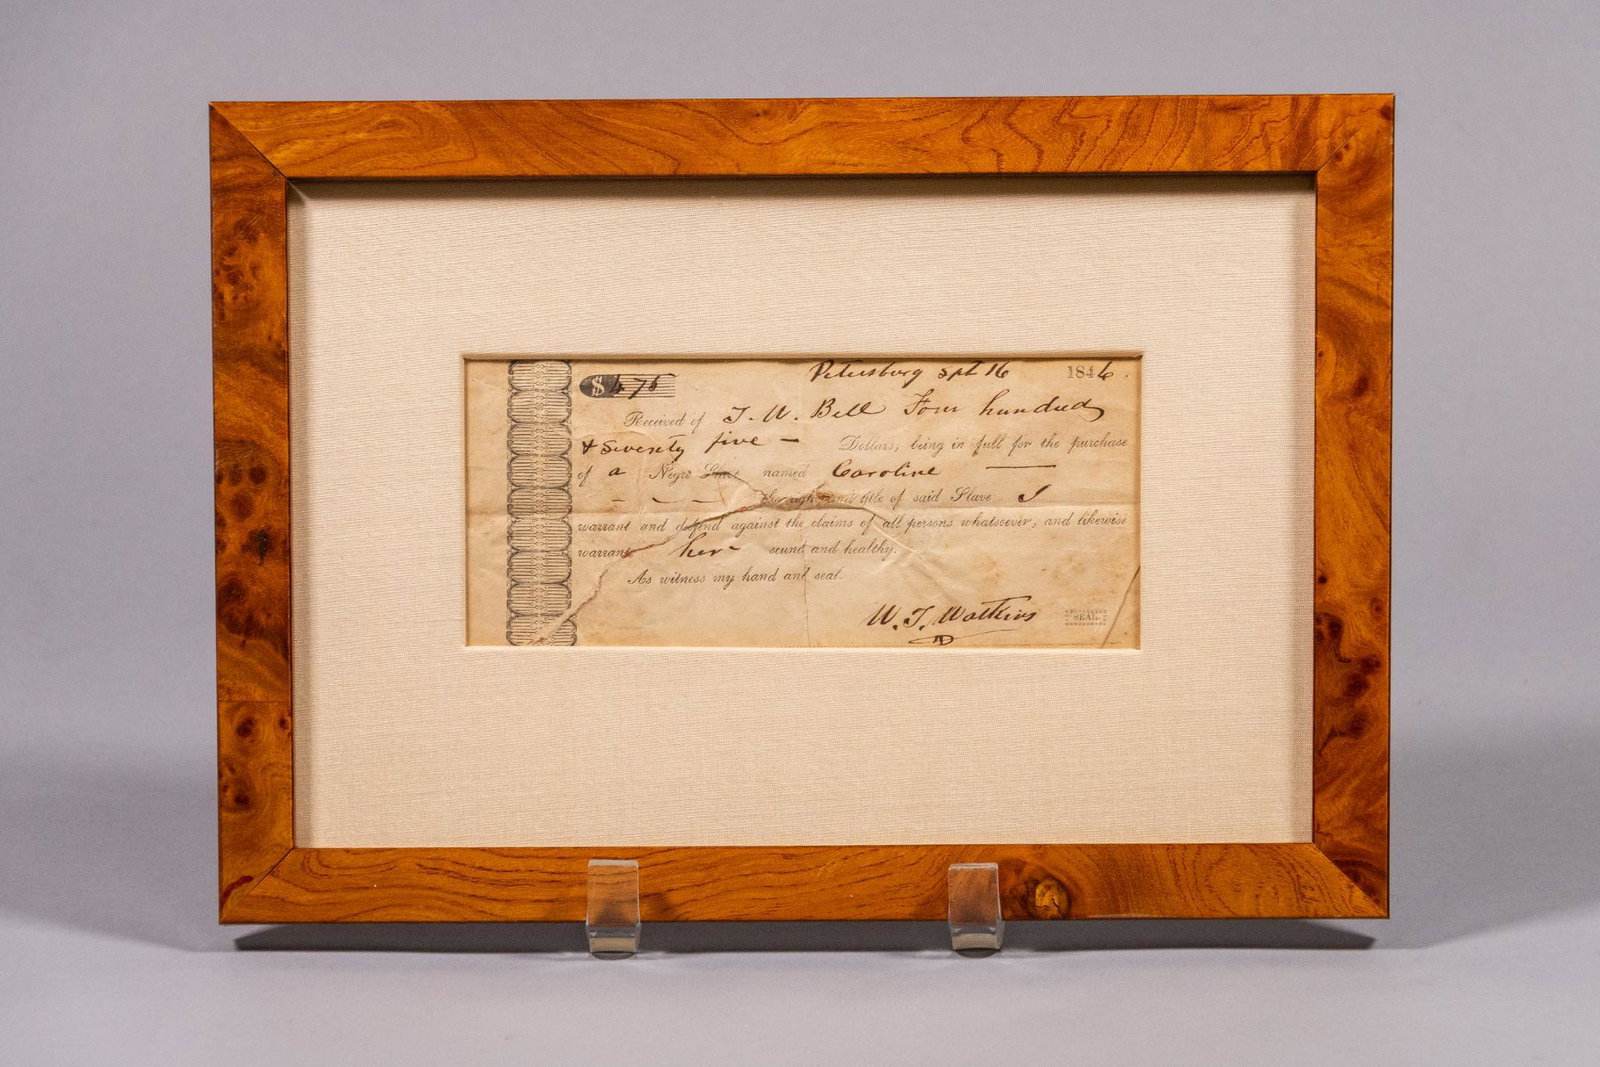 Petersburg Spt 16 1846.
$475
Received of T. W. Bell Four hundred
& Seventy five — Dollars, being in full for the purchase
of a Negro Slave named Caroline —
— — — the right and title of said Slave I
warrant and defend against the claims of all persons whatsoever, and likewise
warrant her sound and healthy.
As witness my hand and seal.
W. T. Watkins SEAL